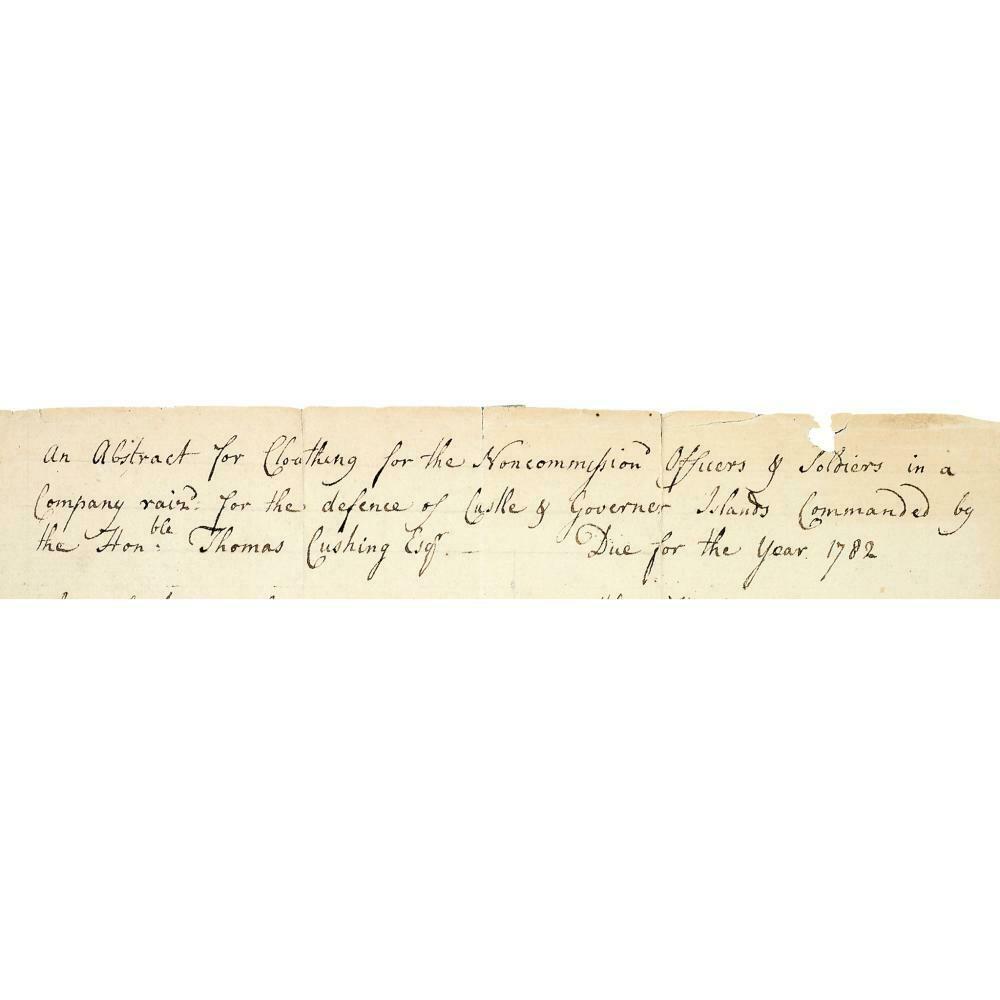 An Abstract for Cloathing for the Noncommission^d Officers & Soldiers in a
Company rais^d: for the defence of Castle & Governer Islands Commanded by
the Hon^ble: Thomas Cushing Esq^r. — Due for the Year. 1782